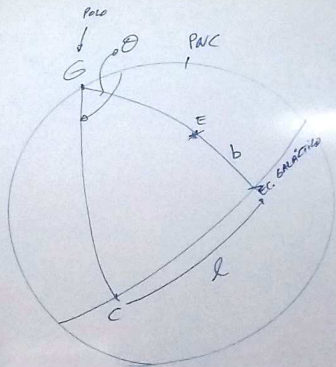 POLO
θ
PNC
G
E
b
EC. GALÁCTICO
l
C